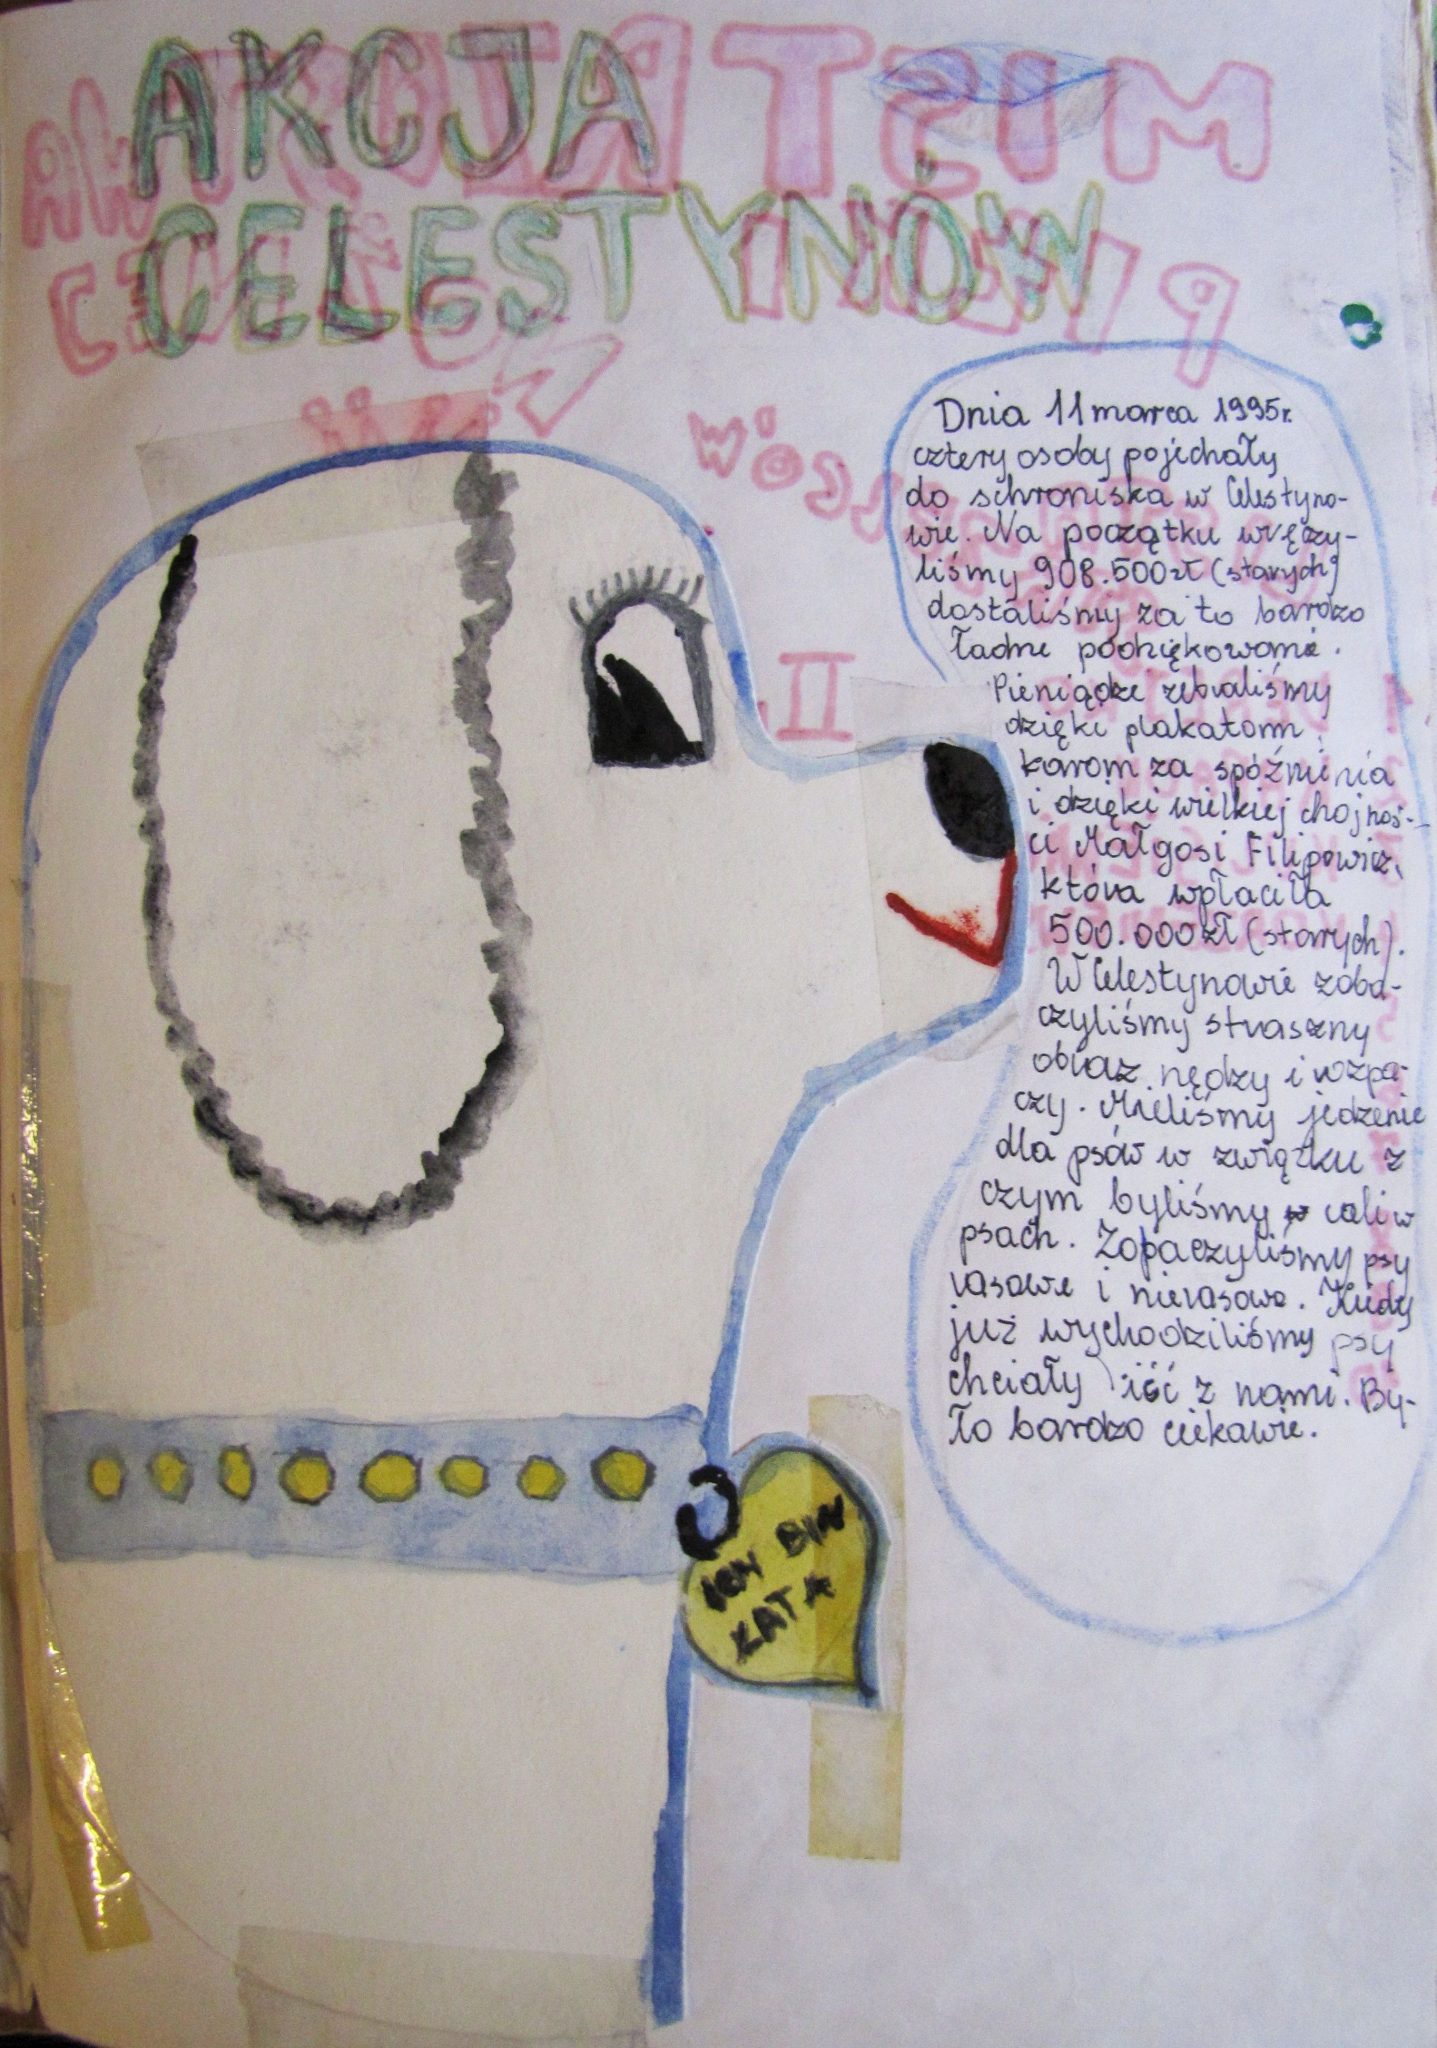 AKCJA
CELESTYNÓW
Dnia 11 marca 1995r.
cztery osoby pojechały
do schroniska w Celestyno-
wie. Na początku wręczy-
liśmy 908.500zł (starych)
dostaliśmy za to bardzo
ładne podziękowanie.
Pieniądze zebraliśmy
dzięki plakatom,
karom za spóźnienia
i dzięki wielkiej chojnoś-
ci Małgosi Filipowicz,
która wpłaciła
500.000zł (starych).
W Celestynowie zoba-
czyliśmy straszny
obraz nędzy i rozpa-
czy. Mieliśmy jedzenie
dla psów w związku z
czym byliśmy cali w
psach. Zobaczyliśmy psy
rasowe i nierasowe. Kiedy
już wychodziliśmy psy
chciały iść z nami. By-
ło bardzo ciekawie.
ICH BIN
KATA
II